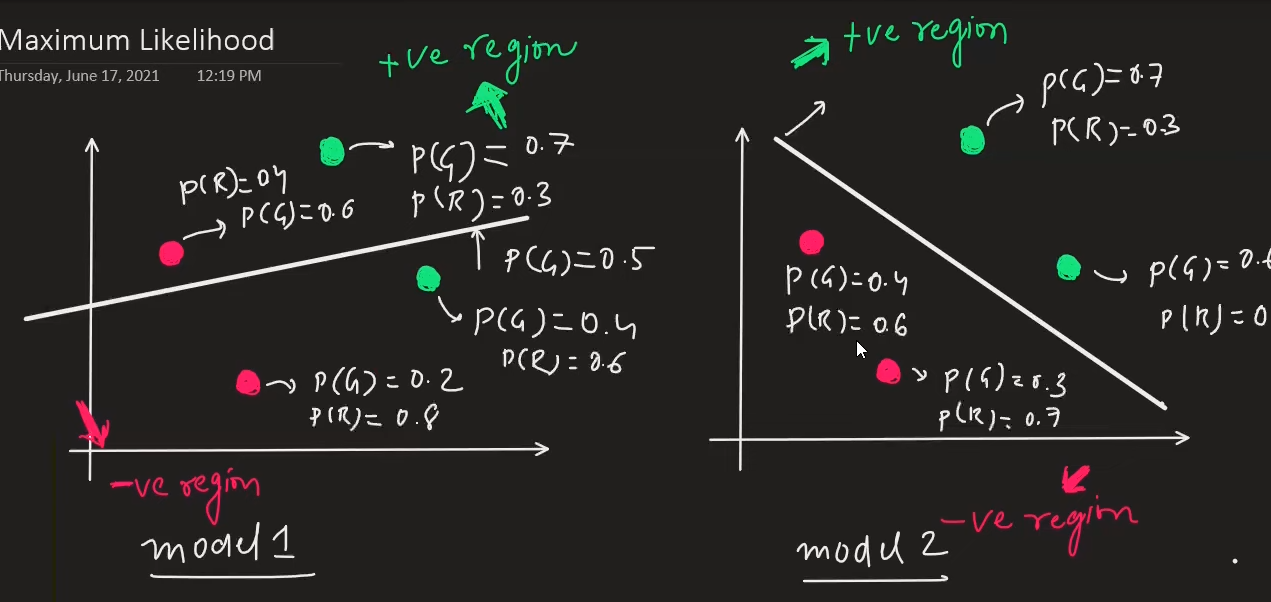 Maximum Likelihood
Thursday, June 17, 2021 12:19 PM
+ve region
P(G)= 0.7
P(R)=0.3
P(R)=04
P(G)=0.6
P(G)=0.5
P(G)=0.4
P(R)=0.6
P(G)=0.2
P(R)=0.8
-ve region
model 1
+ve region
P(G)=0.7
P(R)=0.3
P(G)=0.4
P(R)=0.6
P(G)=0.6
P(R)=0
P(G)=0.3
P(R)=0.7
-ve region
model 2